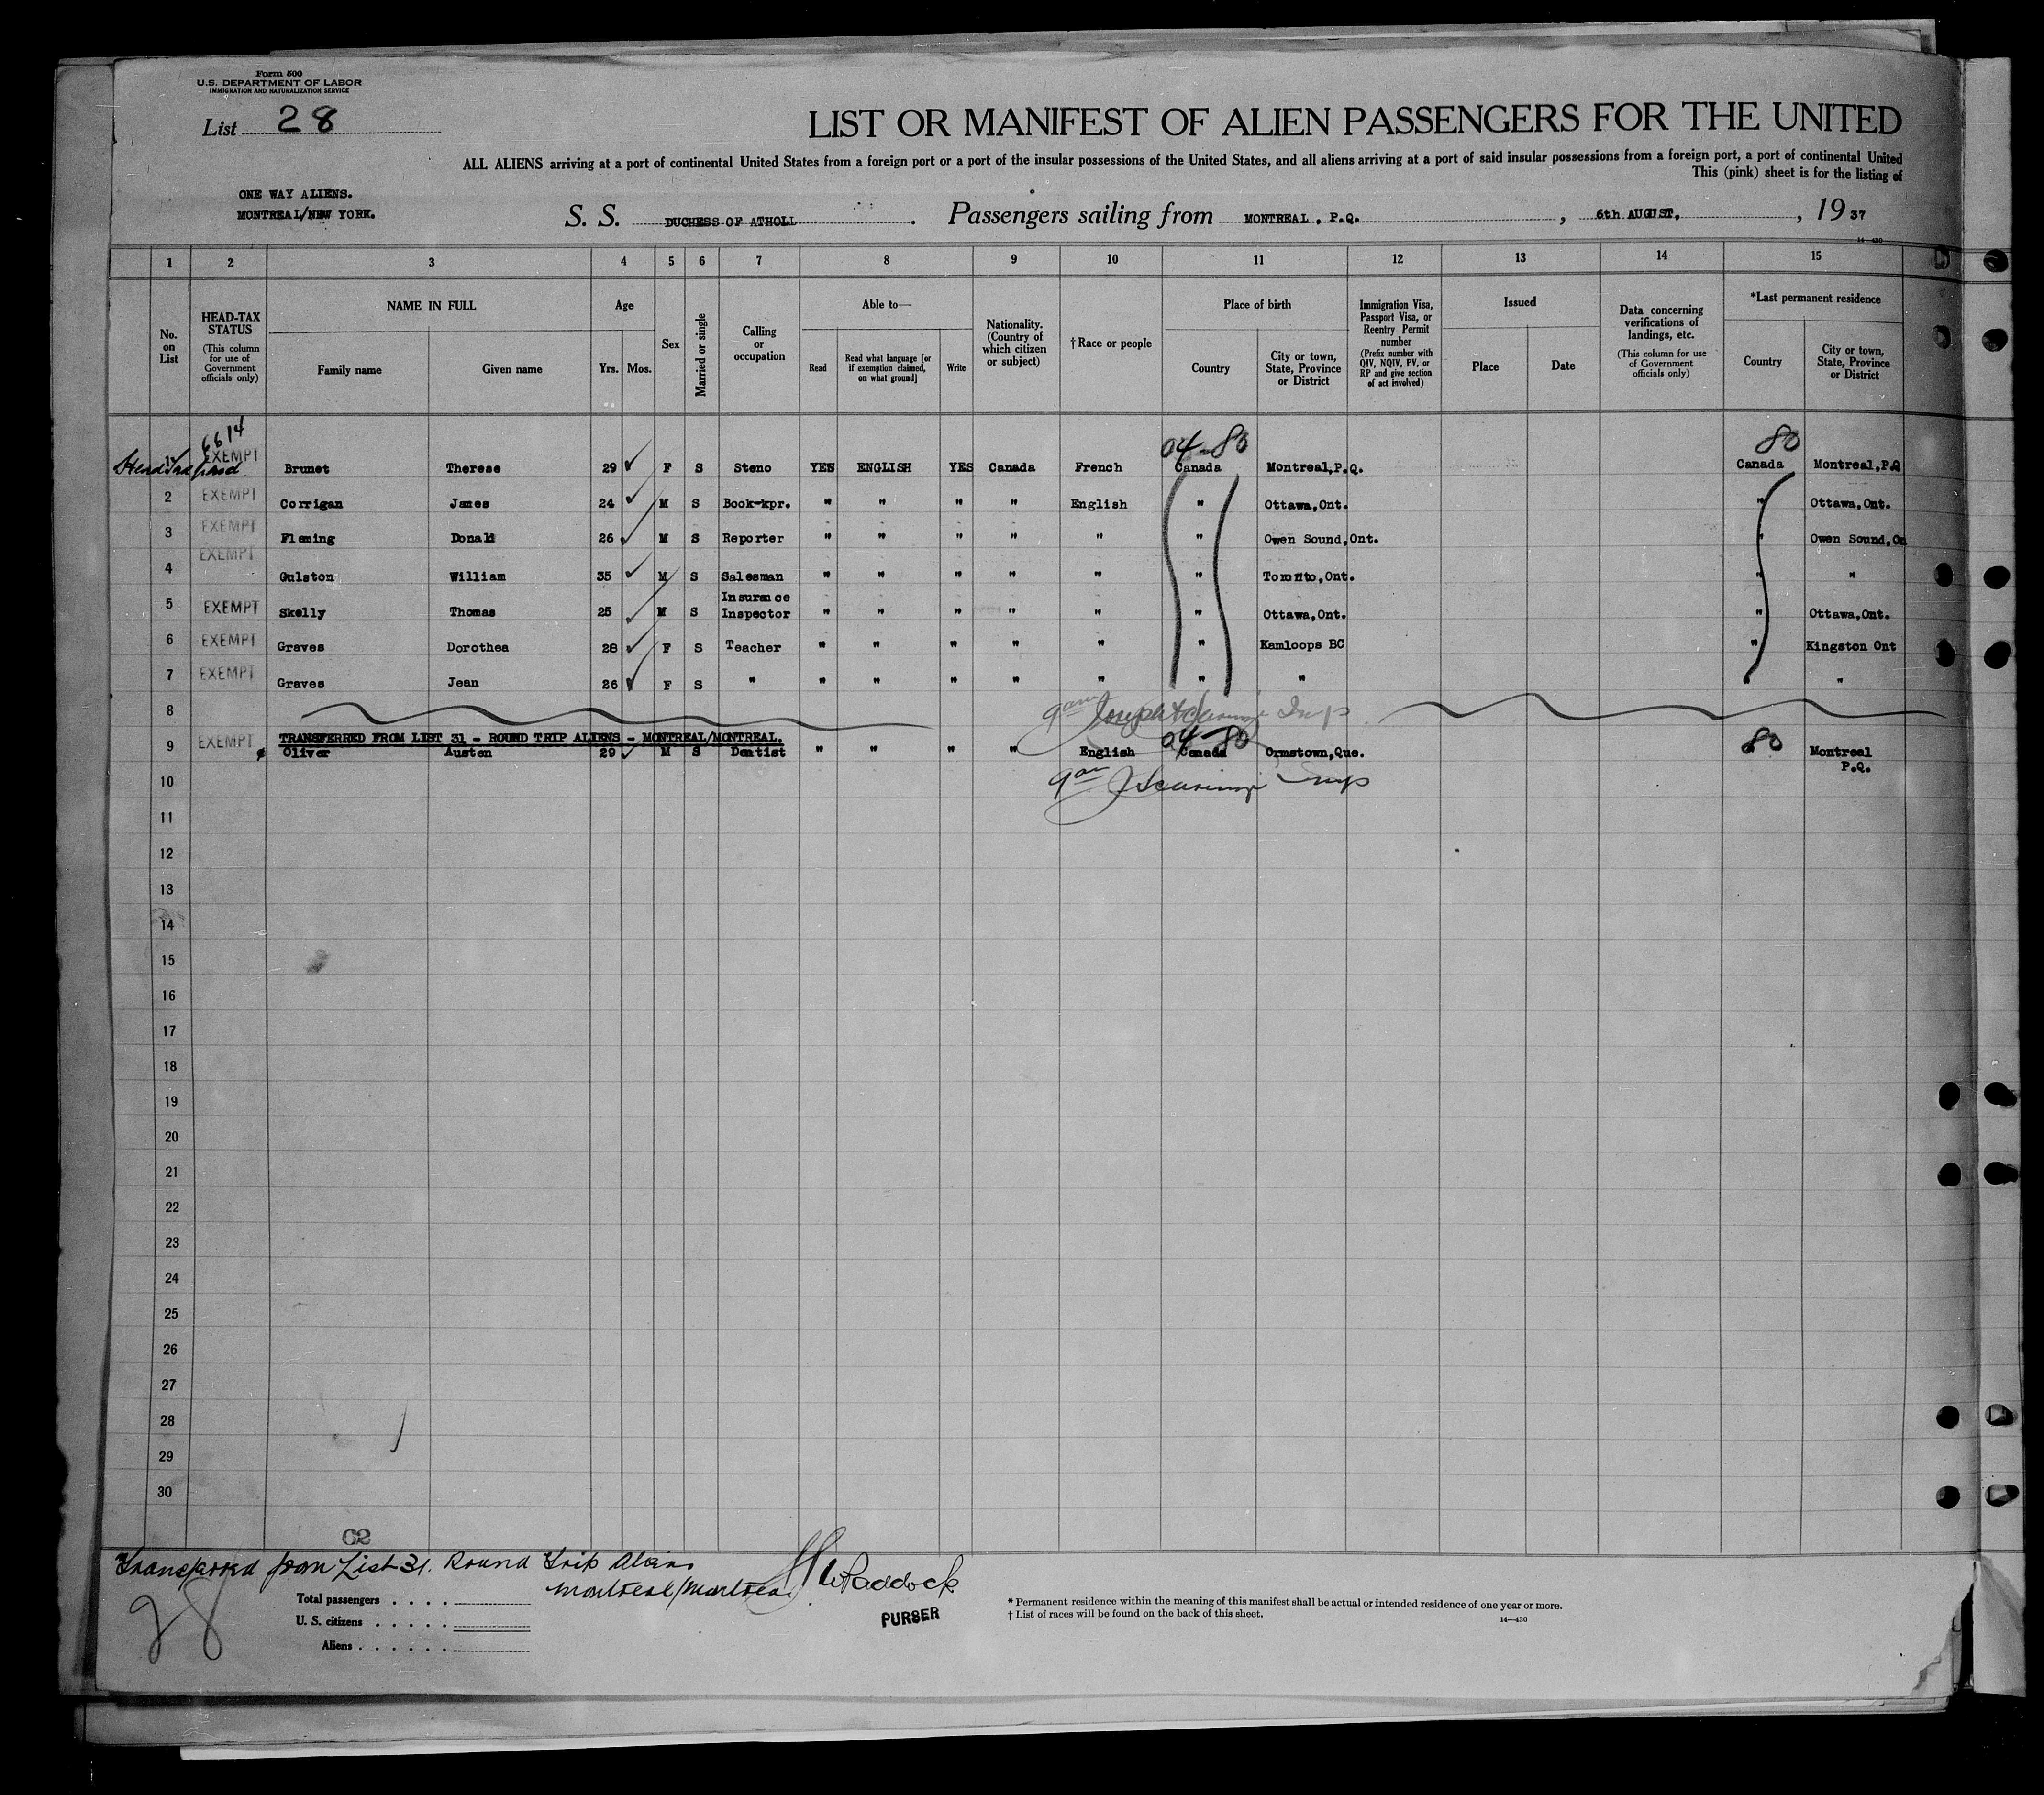 Form 500
U.S. DEPARTMENT OF LABOR
IMMIGRATION AND NATURALIZATION SERVICE
List 28
LIST OR MANIFEST OF ALIEN PASSENGERS FOR THE UNITED
ALL ALIENS arriving at a port of continental United States from a foreign port or a port of the insular possessions of the United States, and all aliens arriving at a port of said insular possessions from a foreign port, a port of continental United
This (pink) sheet is for the listing of
ONE WAY ALIENS.
MONTREAL/NEW YORK.
S. S. DUCHESS OF ATHOLL. Passengers sailing from MONTREAL. P.Q., 6th AUGUST, 1937
14—430
1 2 3 4 5 6 7 8 9 10 11 12 13 14 15
No. on List
HEAD-TAX STATUS (This column for use of Government officials only)
NAME IN FULL Family name Given name
Age Yrs. Mos.
Sex
Married or single
Calling or occupation
Able to— Read Read what language [or if exemption claimed, on what ground] Write
Nationality. (Country of which citizen or subject)
†Race or people
Place of birth Country City or town, State, Province or District
Immigration Visa, Passport Visa, or Reentry Permit number (Prefix number with QIV, NQIV, PV, or RP and give section of act involved)
Issued Place Date
Data concerning verifications of landings, etc. (This column for use of Government officials only)
*Last permanent residence Country City or town, State, Province or District
6614 04-80 80
Head Tax paid 1 EXEMPT Brunet Therese 29 ✓ F S Steno YES ENGLISH YES Canada French Canada Montreal,P.Q. Canada Montreal,P.Q
2 EXEMPT Corrigan James 24 ✓ M S Book-kpr. " " " " English " Ottawa,Ont. " Ottawa,Ont.
3 EXEMPT Fleming Donald 26 ✓ M S Reporter " " " " " " Owen Sound,Ont. " Owen Sound,On
4 EXEMPT Gulston William 35 ✓ M S Salesman " " " " " " Toronto,Ont. " "
5 EXEMPT Skelly Thomas 25 ✓ M S Insurance Inspector " " " " " " Ottawa,Ont. " Ottawa,Ont.
6 EXEMPT Graves Dorothea 28 ✓ F S Teacher " " " " " " Kamloops BC " Kingston Ont
7 EXEMPT Graves Jean 26 ✓ F S " " " " " " " " " "
8 Insp
TRANSFERRED FROM LIST 31 - ROUND TRIP ALIENS - MONTREAL/MONTREAL.
04-80
9 EXEMPT Oliver Austen 29 ✓ M S Dentist " " " " English Canada Ormstown,Que. 80 Montreal P.Q.
10 Insp
11
12
13
14
15
16
17
18
19
20
21
22
23
24
25
26
27
28
29
30
C2
Transferred from List 31. Round Trip Aliens
Montreal/Montreal.
Paddock
PURSER
28
Total passengers
U. S. citizens
Aliens
* Permanent residence within the meaning of this manifest shall be actual or intended residence of one year or more.
† List of races will be found on the back of this sheet.
14—430